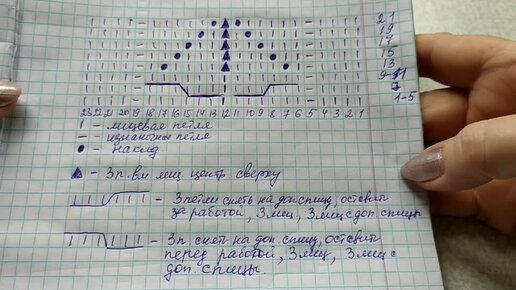 21
19
17
15
13
9-11
7
1-5
23 22 21 20 19 18 17 16 15 14 13 12 11 10 9 8 7 6 5 4 3 2 1
| - лицевая петля
— - изнаночная петля
● - накид
▲ - 3 п. вм лиц. центр сверху
- 3 петли снять на доп спиц, оставит
за работой, 3 лиц, 3 лиц с доп спицы
- 3 п снять на доп. спиц, оставит
перед работой, 3 лиц, 3 лиц с
доп. спицы.